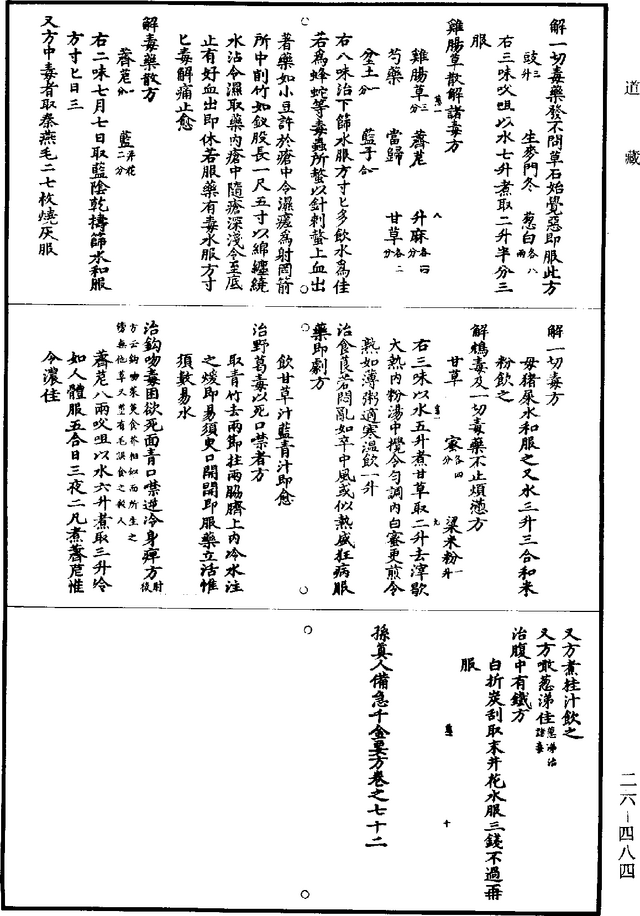 道藏
解一切毒藥發不問草石始覺惡即服此方
豉三升 生麥門冬 葱白各八兩
右三味㕮咀以水七升煮取二升半分三
服
雞腸草散解諸毒方
雞腸草三分 薺苨 升麻各四分
芍藥 當歸 甘草各二分
坌土一分 藍子一合
右八味治下篩水服方寸匕多飲水為佳
若為蜂蛇等毒蟲所螫以針刺螫上血出
著藥如小豆許於瘡中令濕瘥為射罔箭
所中削竹如釵股長一尺五寸以綿纏繞
水沾令濕取藥內瘡中隨瘡深淺令至底
止有好血出即休若服藥有毒水服方寸
匕毒解痛止愈
解毒藥散方
薺苨一分 藍并花二分
右二味七月七日取藍陰乾擣篩水和服
方寸匕日三
又方中毒者取秦燕毛二七枚燒灰服
解一切毒方
母豬屎水和服之又水三升三合和米
粉飲之
解鴆毒及一切毒藥不止煩懣方
甘草 蜜各四分 粱米粉一升
右三味以水五升煮甘草取二升去滓歇
大熱內粉湯中攪令勻調內白蜜更煎令
熟如薄粥適寒溫飲一升
治食莨菪悶亂如卒中風或似熱盛狂病服
藥即劇方
飲甘草汁藍青汁即愈
治野葛毒以死口噤者方
取青竹去兩節拄兩脇臍上內冷水注
之煖即易須臾口開開即服藥立活惟
須數易水
治鈎吻毒困欲死面青口噤逆冷身痺方肘後
方云鈎吻茱萸食芥相似而所生之
傍無他草又莖有毛誤食之殺人
薺苨八兩㕮咀以水六升煮取三升冷
如人體服五合日三夜二凡煮薺苨惟
令濃佳
又方煮桂汁飲之
又方噉葱涕佳葱涕治諸毒
治腹中有鐵方
白折炭刮取末井花水服三錢不過再
服
孫真人備急千金要方卷之七十二
二六－四八四